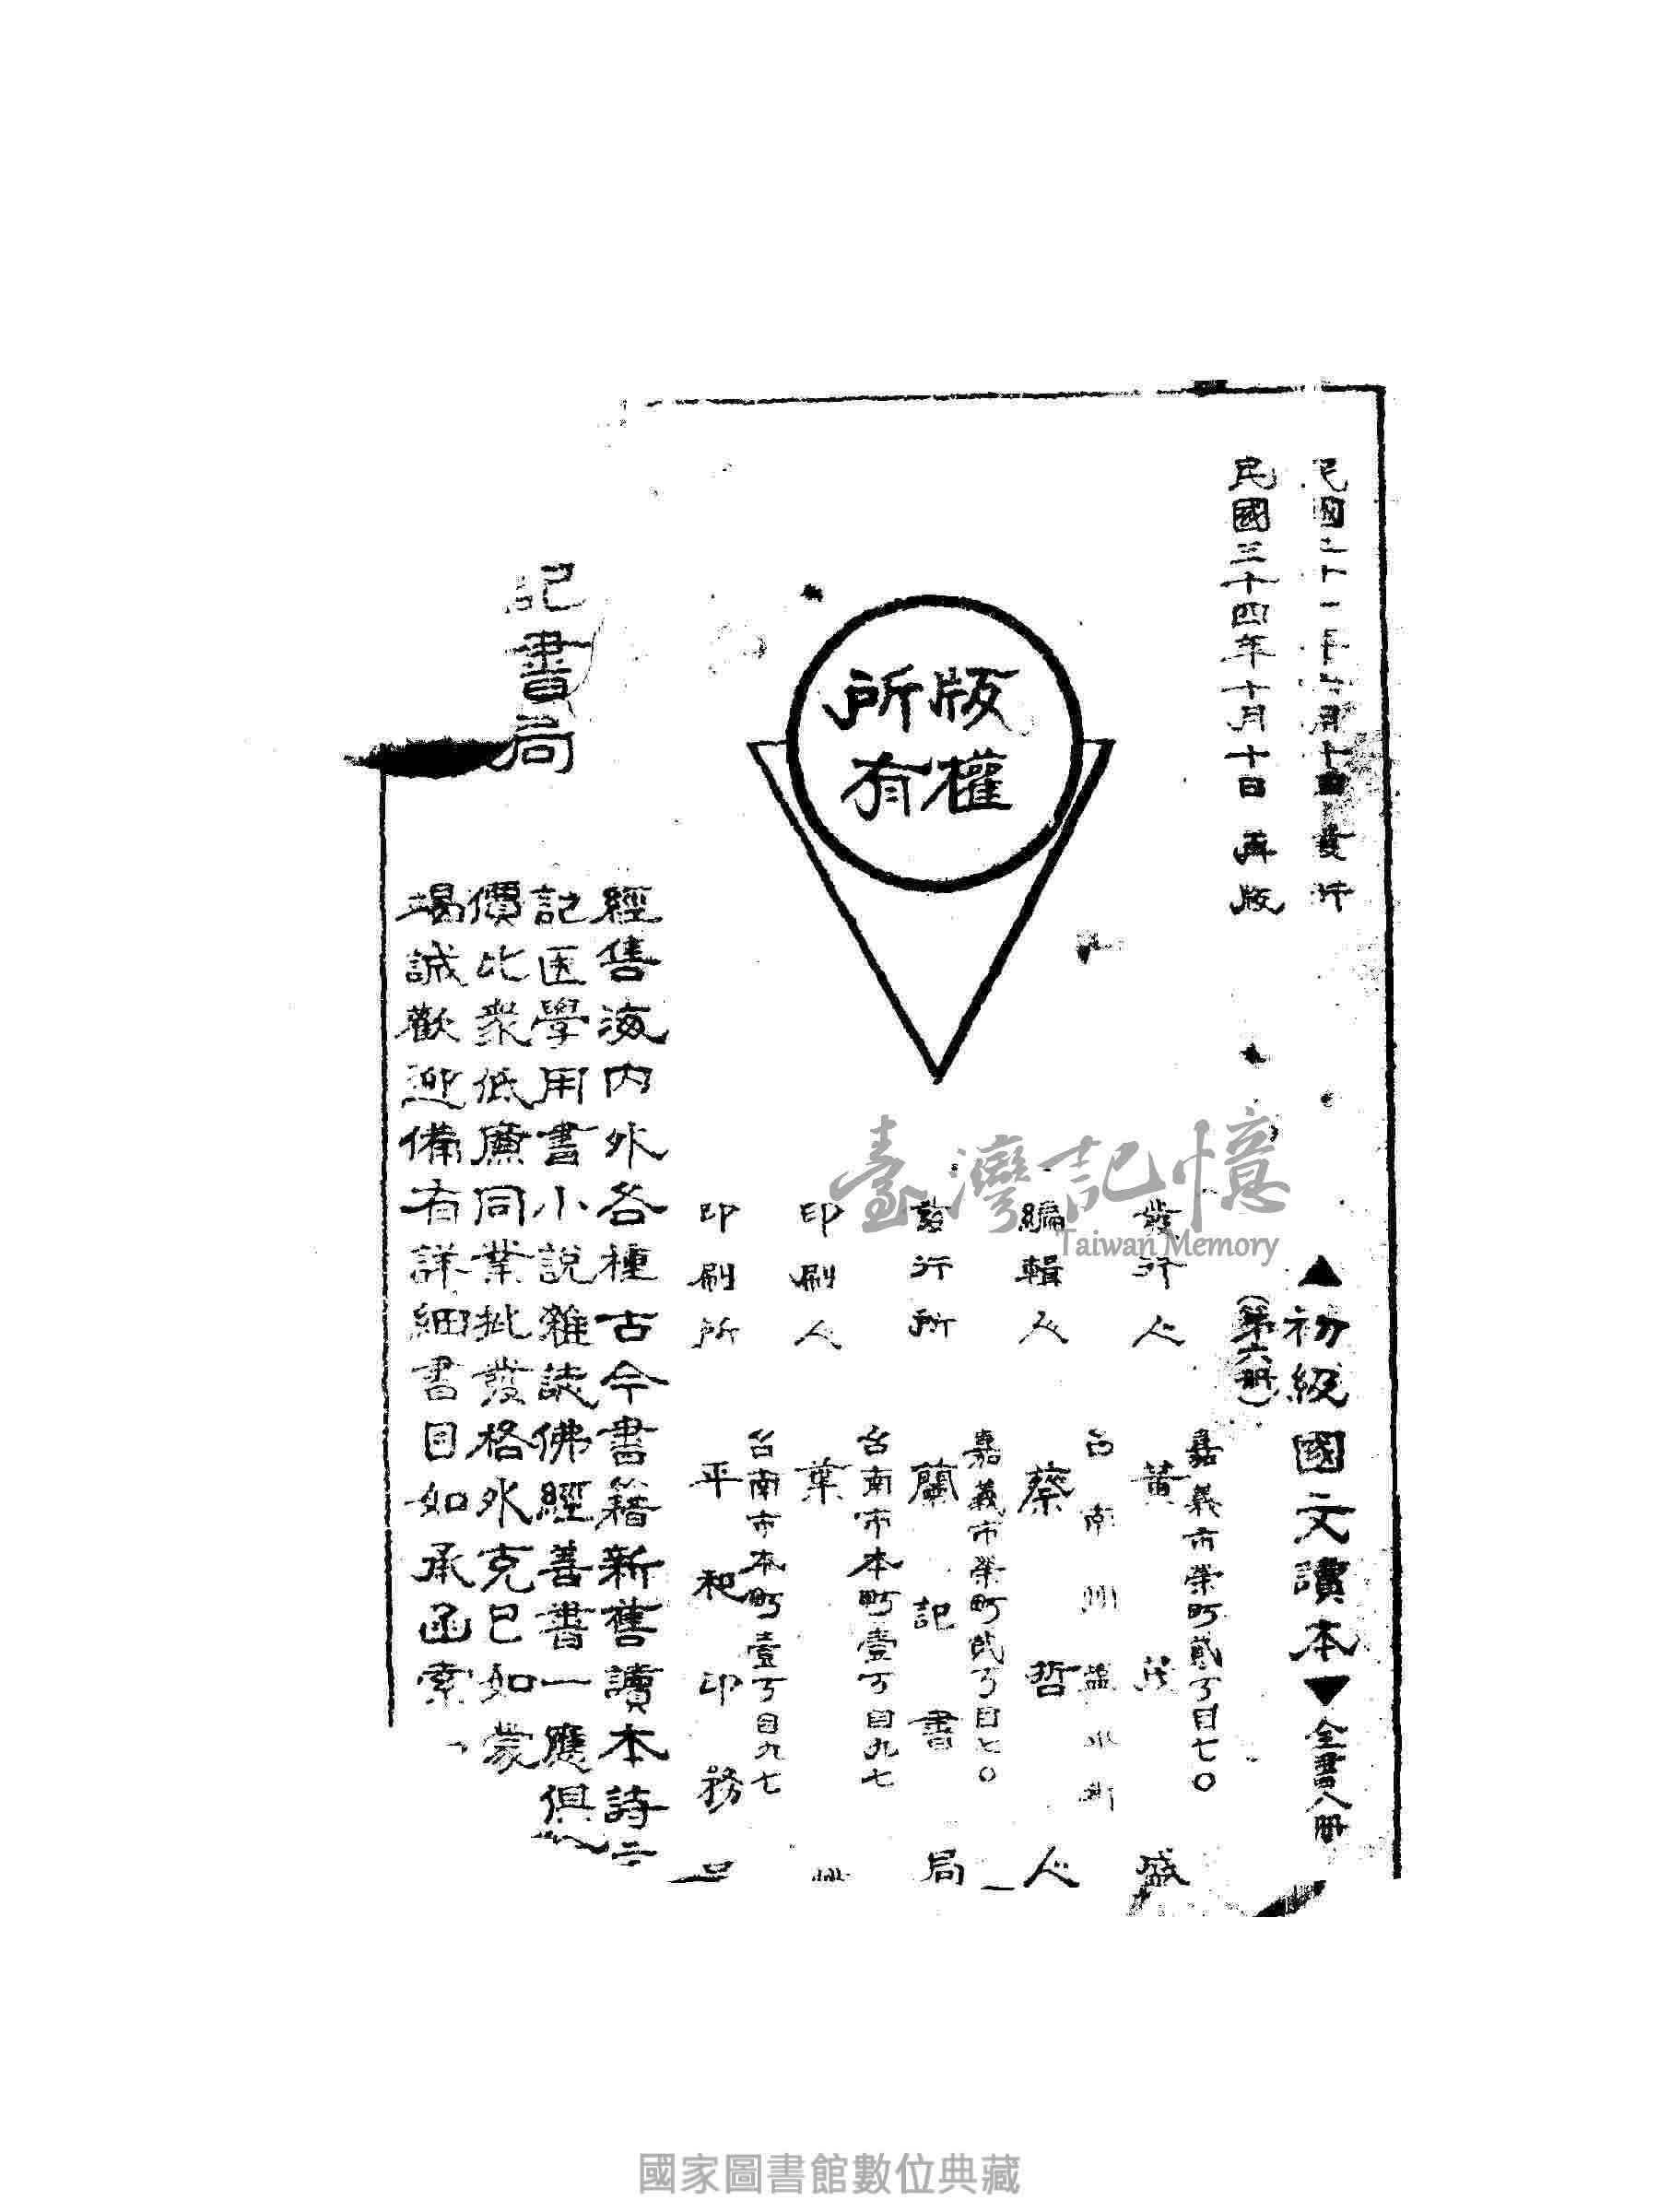 民國三十四年十月十日 再版
▲初級國文讀本▼全書八冊
(第六冊)
版權
所有
嘉義市榮町貳丁目七〇
發行人 黃 盛
台南州鹽水街
編輯人 蔡哲人
嘉義市榮町貳丁目七〇
發行所 蘭記書局
台南市本町壹丁目九七
印刷人 葉
台南市本町壹丁目九七
印刷所 平和印務
記書局
經售海內外各種古今書籍新舊讀本詩
記医學用書小說雜誌佛經善書一應俱
價比衆低廉同業批發格外克已如蒙
竭誠歡迎備有詳細書目如承函索
臺灣記憶
Taiwan Memory
國家圖書館數位典藏